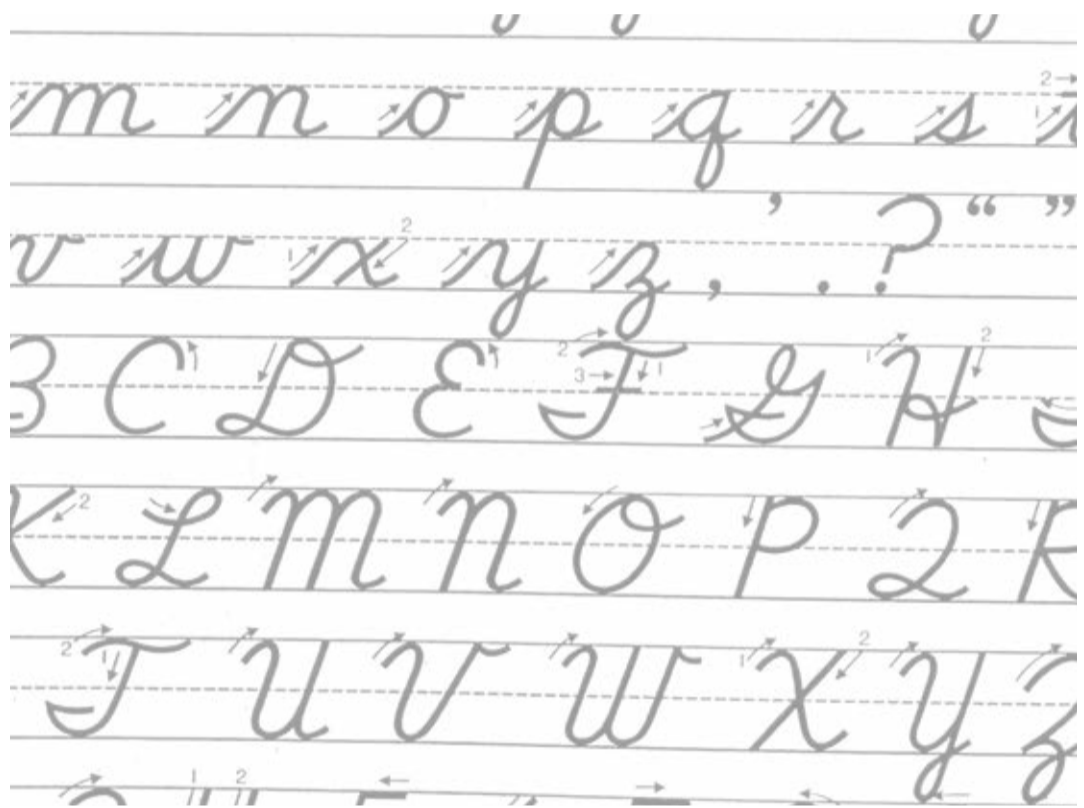 m n o p q r s
v w x y z , . ’ ? “ ”
B C D E F G H
K L M N O P Q R
T U V W X Y Z